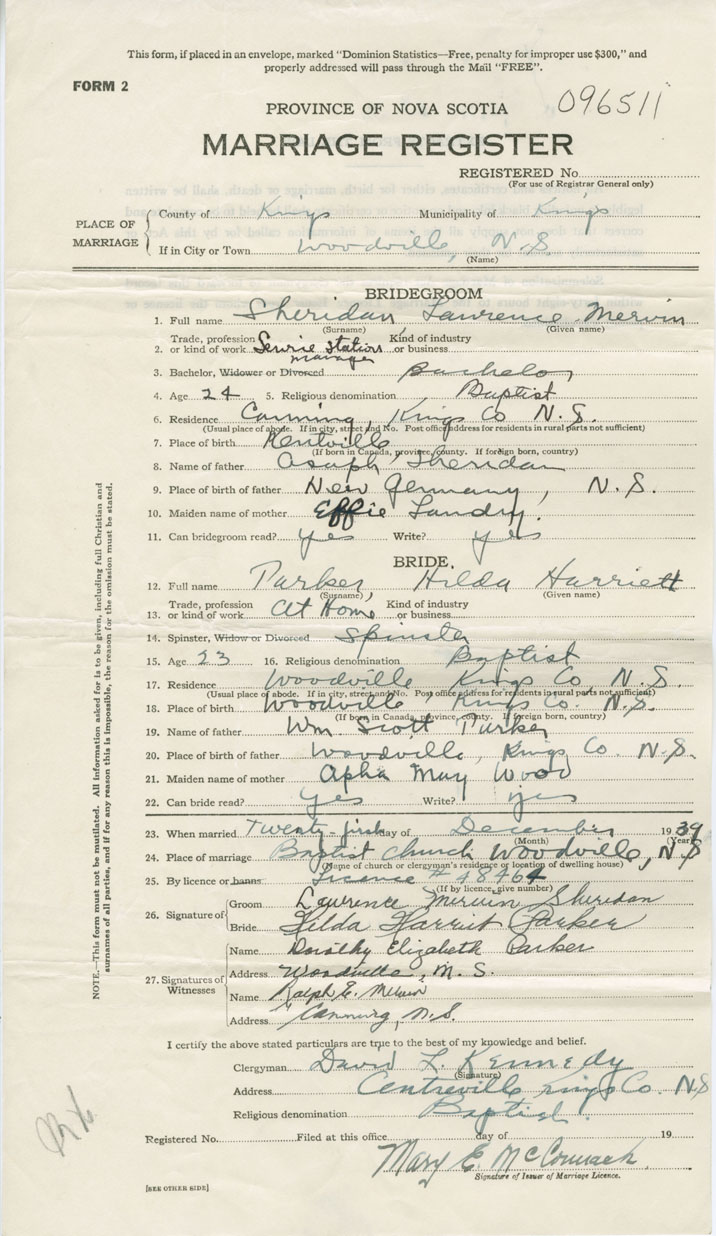 This form, if placed in an envelope, marked "Dominion Statistics—Free, penalty for improper use $300," and
properly addressed will pass through the Mail "FREE".
FORM 2
096511
PROVINCE OF NOVA SCOTIA
MARRIAGE REGISTER
REGISTERED No.
(For use of Registrar General only)
PLACE OF MARRIAGE
County of Kings Municipality of Kings
If in City or Town Woodville, N.S.
(Name)
BRIDEGROOM
1. Full name Sheridan, Lawrence Mervin
(Surname) (Given name)
2. Trade, profession or kind of work Service Station manager Kind of industry or business
3. Bachelor, Widower or Divorced Bachelor
4. Age 24 5. Religious denomination Baptist
6. Residence Canning, Kings Co N.S.
(Usual place of abode. If in city, street and No. Post office address for residents in rural parts not sufficient)
7. Place of birth Kentville
(If born in Canada, province, county. If foreign born, country)
8. Name of father Asaph Sheridan
9. Place of birth of father New Germany, N.S.
10. Maiden name of mother Effie Landry.
11. Can bridegroom read? yes Write? yes
BRIDE.
12. Full name Parker, Hilda Harriett
(Surname) (Given name)
13. Trade, profession or kind of work At Home Kind of industry or business
14. Spinster, Widow or Divorced Spinster
15. Age 23 16. Religious denomination Baptist
17. Residence Woodville Kings Co, N.S.
(Usual place of abode. If in city, street and No. Post office address for residents in rural parts not sufficient)
18. Place of birth Woodville, Kings Co. N.S.
(If born in Canada, province, county. If foreign born, country)
19. Name of father Wm. Scott Parker
20. Place of birth of father Woodville, Kings Co. N.S.
21. Maiden name of mother Apha May Wood
22. Can bride read? yes Write? yes
23. When married Twenty-first day of December 1939
(Month) (Year)
24. Place of marriage Baptist Church Woodville, N.S
(Name of church or clergyman's residence or location of dwelling house)
25. By licence or banns Licence # 48464
(If by licence, give number)
26. Signature of
Groom Lawrence Mervin Sheridan
Bride Hilda Harriet Parker
27. Signatures of Witnesses
Name Dorothy Elizabeth Parker
Address Woodville, N.S.
Name Ralph E.
Address Canning, N.S.
I certify the above stated particulars are true to the best of my knowledge and belief.
Clergyman David L. Kennedy
(Signature)
Address Centreville Kings Co. N.S
Religious denomination Baptist.
Registered No. Filed at this office day of 19
Mary E. McCormack
Signature of Issuer of Marriage Licence.
[SEE OTHER SIDE]
NOTE.—This form must not be mutilated. All information asked for is to be given, including full Christian and
surnames of all parties, and if for any reason this is impossible, the reason for the omission must be stated.